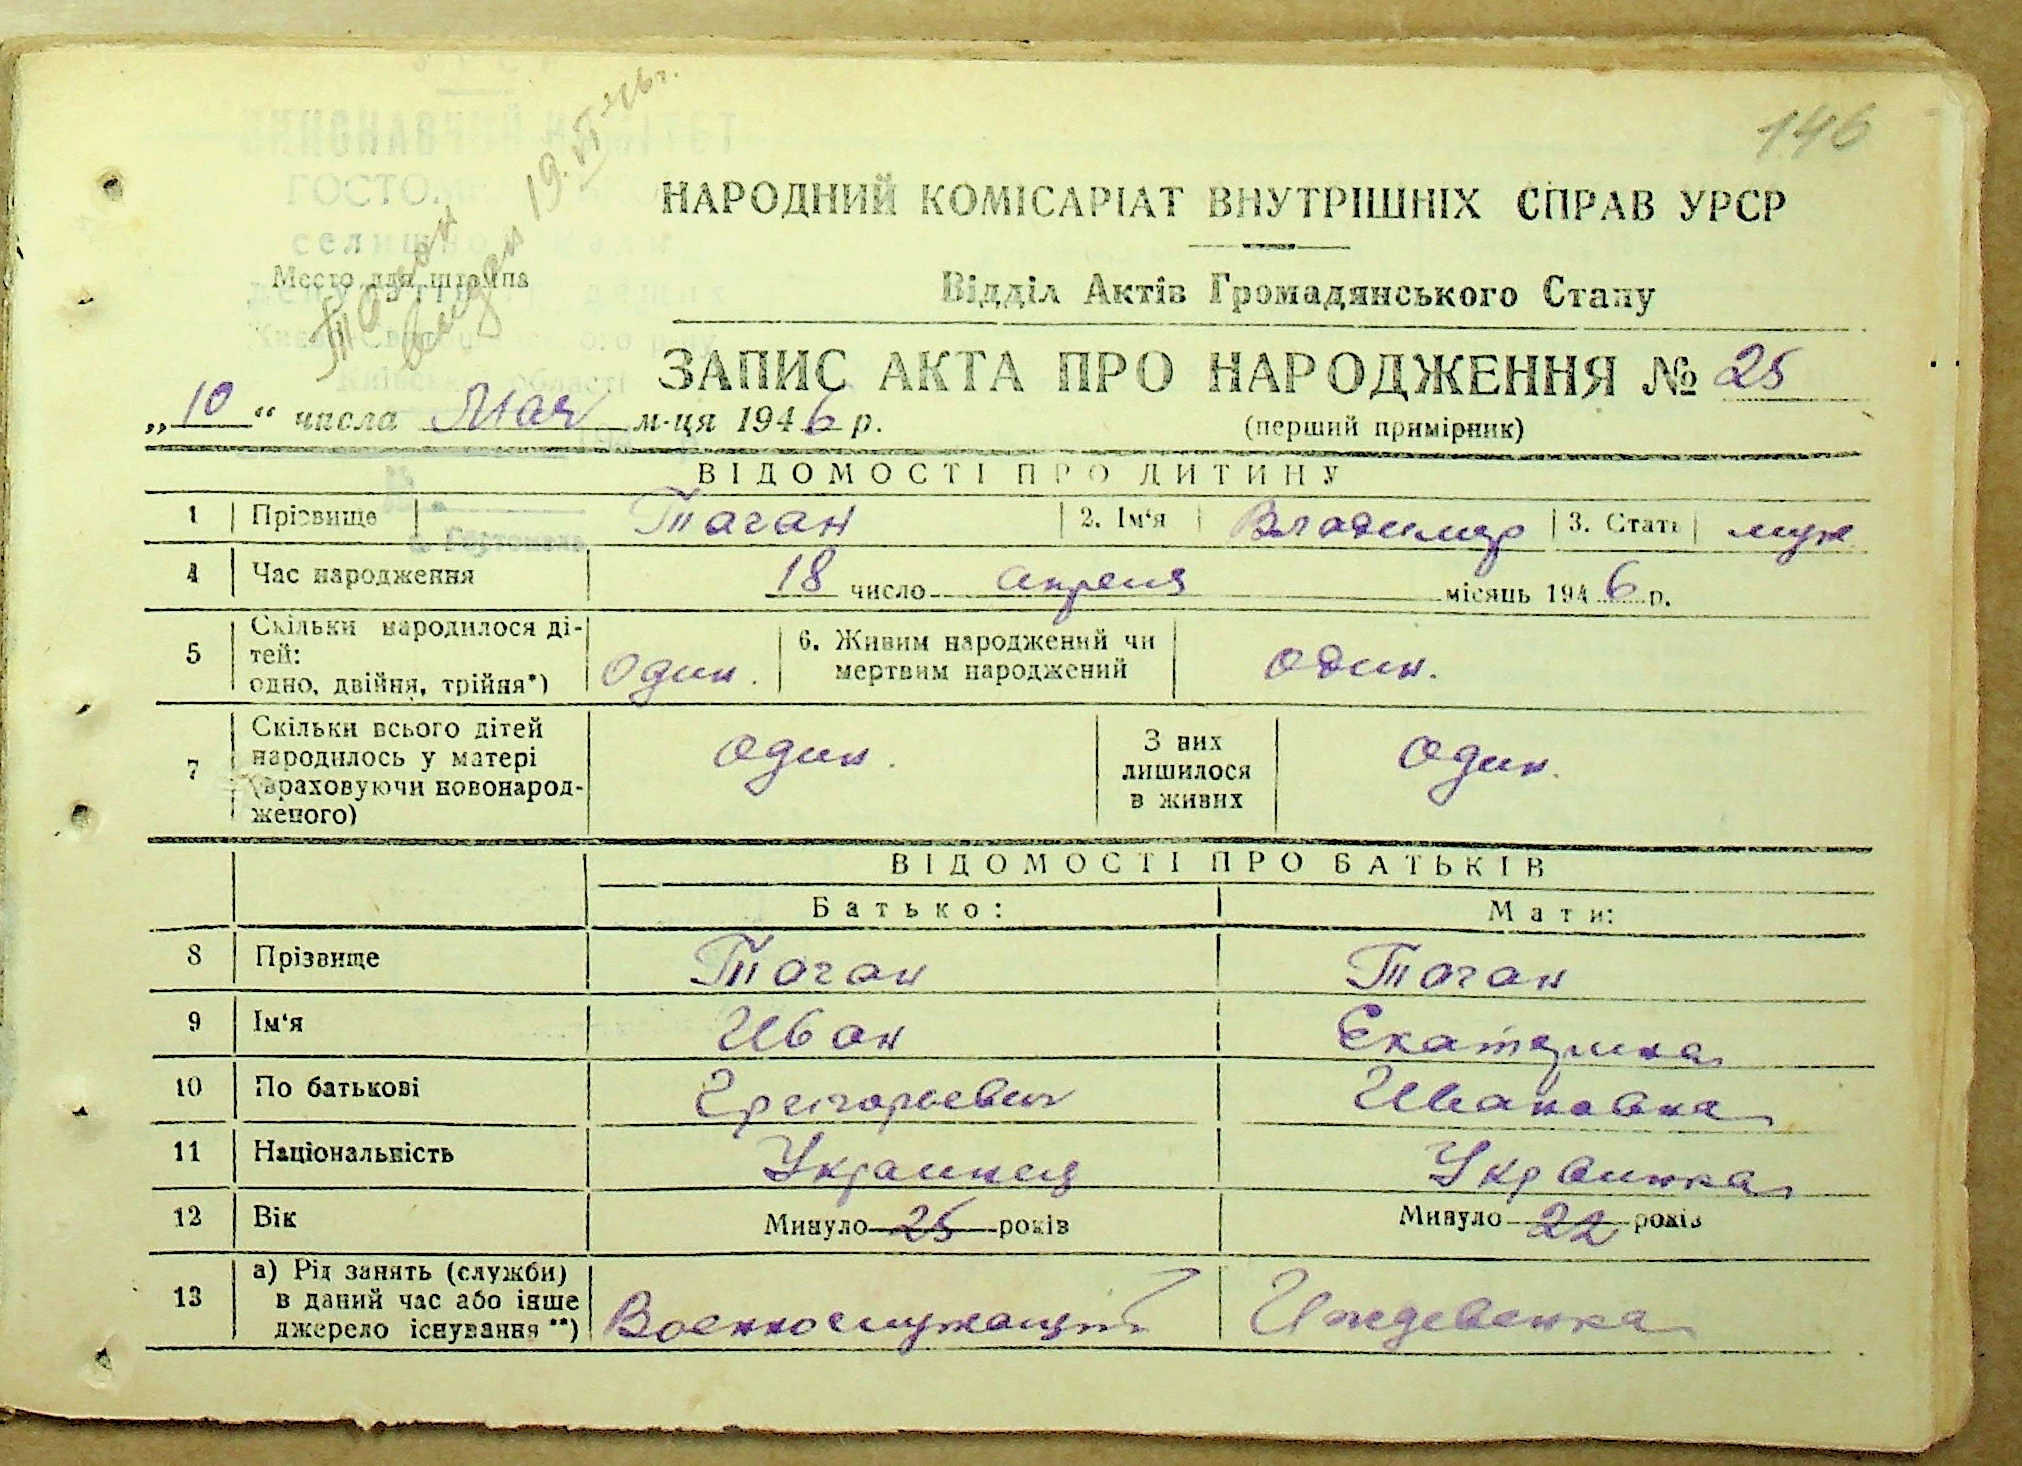 146
19.VI-46г.
Таган
видан
НАРОДНИЙ КОМІСАРІАТ ВНУТРІШНІХ СПРАВ УРСР
Место для штампа
Відділ Актів Громадянського Стану
ЗАПИС АКТА ПРО НАРОДЖЕННЯ № 25
„10“ числа Мая м-ця 1946 р.
(перший примірник)
ВІДОМОСТІ ПРО ДИТИНУ
1 Прізвище Таган 2. Ім‘я Владимир 3. Стать муж
4 Час народження 18 число апреля місяць 1946 р.
5 Скільки народилося ді-
тей:
одно, двійня, трійня*) один. 6. Живим народжений чи
мертвим народжений один.
7 Скільки всього дітей
народилось у матері
(враховуючи новонарод-
женого) один. З них
лишилося
в живих один.
ВІДОМОСТІ ПРО БАТЬКІВ
Батько: Мати:
8 Прізвище Таган Таган
9 Ім‘я Иван Екатерина
10 По батькові Григорьевич Ивановна
11 Національність Украинец Украинка
12 Вік Минуло 25 років Минуло 22 років
13 а) Рід занять (служби)
в даний час або інше
джерело існування **) Военнослужащий Иждевенка